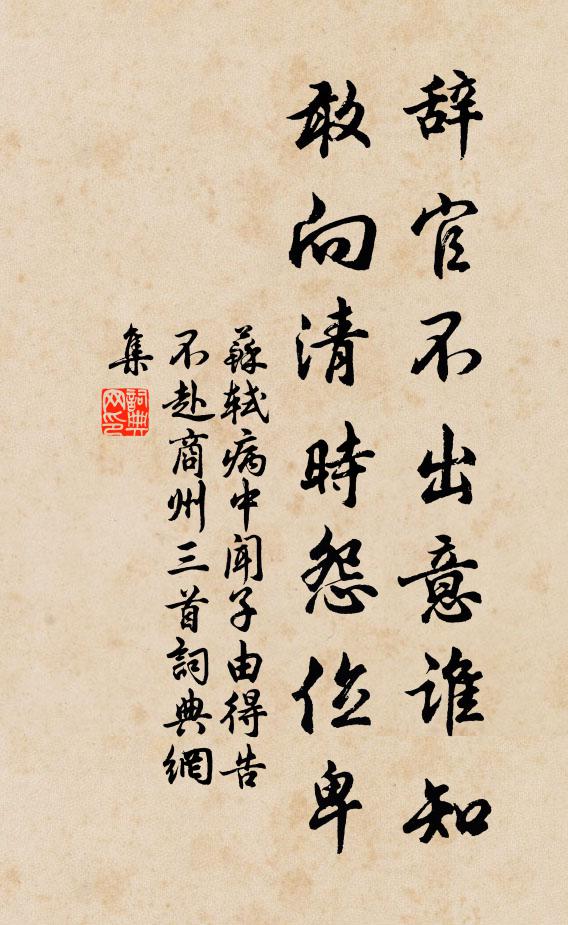 辞官不出意谁知
敢向清時怨位卑
蘇軾病中闻子由得告
不赴商州三首詞典網
集
詞典
网印